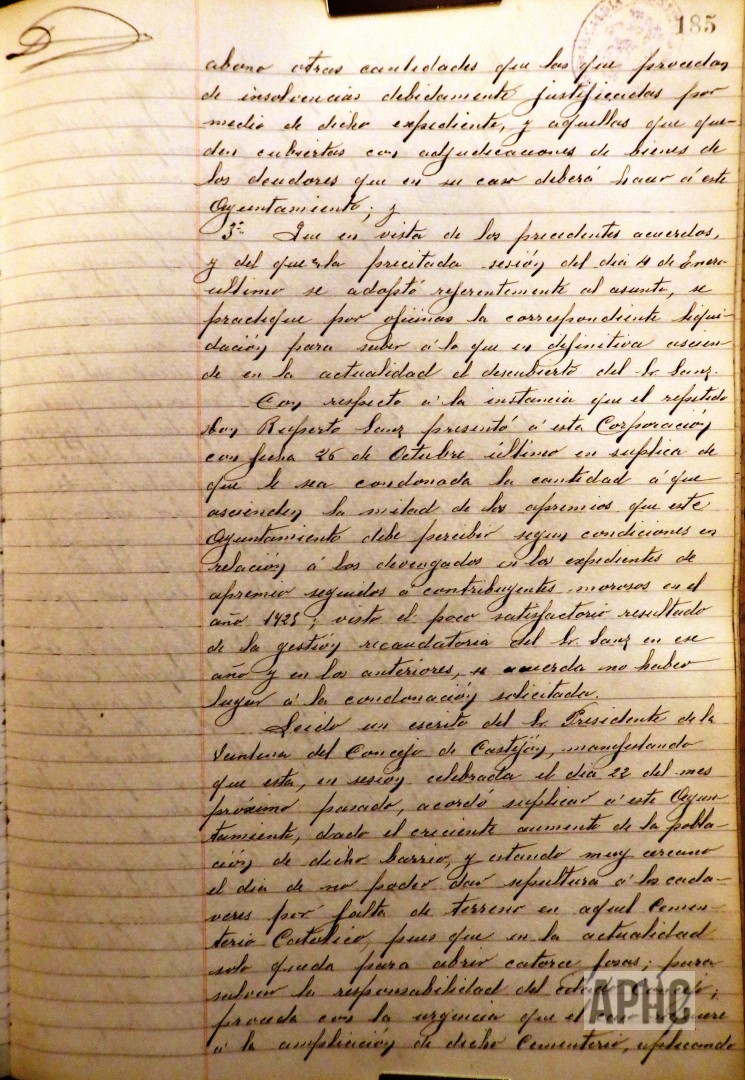 185
abono otras cantidades que las que procedan
de insolvencias debidamente justificadas por
medio de dicho expediente, y aquellas que que-
den cubiertas con adjudicaciones de bienes de
los deudores que en su caso deberá hacer á este
Ayuntamiento; y
3º. Que en vista de los precedentes acuerdos,
y del que en la precitada sesión del dia 4 de Enero
ultimo se adoptó referentemente al asunto, se
practique por oficinas la correspondiente liqui-
dación para saber á lo que en definitiva ascien-
de en la actualidad el descubierto del Sr. Sanz.
Con respecto á la instancia que el repetido
Don Ruperto Sanz presentó á esta Corporación
con fecha 26 de Octubre último en suplica de
que le sea condonada la cantidad á que
ascienden la mitad de los apremios que este
Ayuntamiento debe percibir segun condiciones en
relación á los devengados en los expedientes de
apremio seguidos a contribuyentes morosos en el
año 1925; visto el poco satisfactorio resultado
de la gestión recaudatoria del Sr. Sanz en ese
año y en los anteriores, se acuerda no haber
lugar á la condonación solicitada.
Leido un escrito del Sr. Presidente de la
del Concejo de Castejón, manifestando
que esta, en sesión celebrada el dia 22 del mes
próximo pasado, acordó suplicar á este Ayun-
tamiento, dado el creciente aumento de la pobla-
ción de dicho barrio, y estando muy cercano
el dia de no poder dar sepultura á los cada-
veres por falta de terreno en aquel Cemen-
terio Católico, pues que en la actualidad
solo queda para abrir catorce fosas; para
salvar la responsabilidad del Concejo;
proceda con la urgencia que el caso requiere
á la ampliación de dicho Cementerio, aplicando
APHC